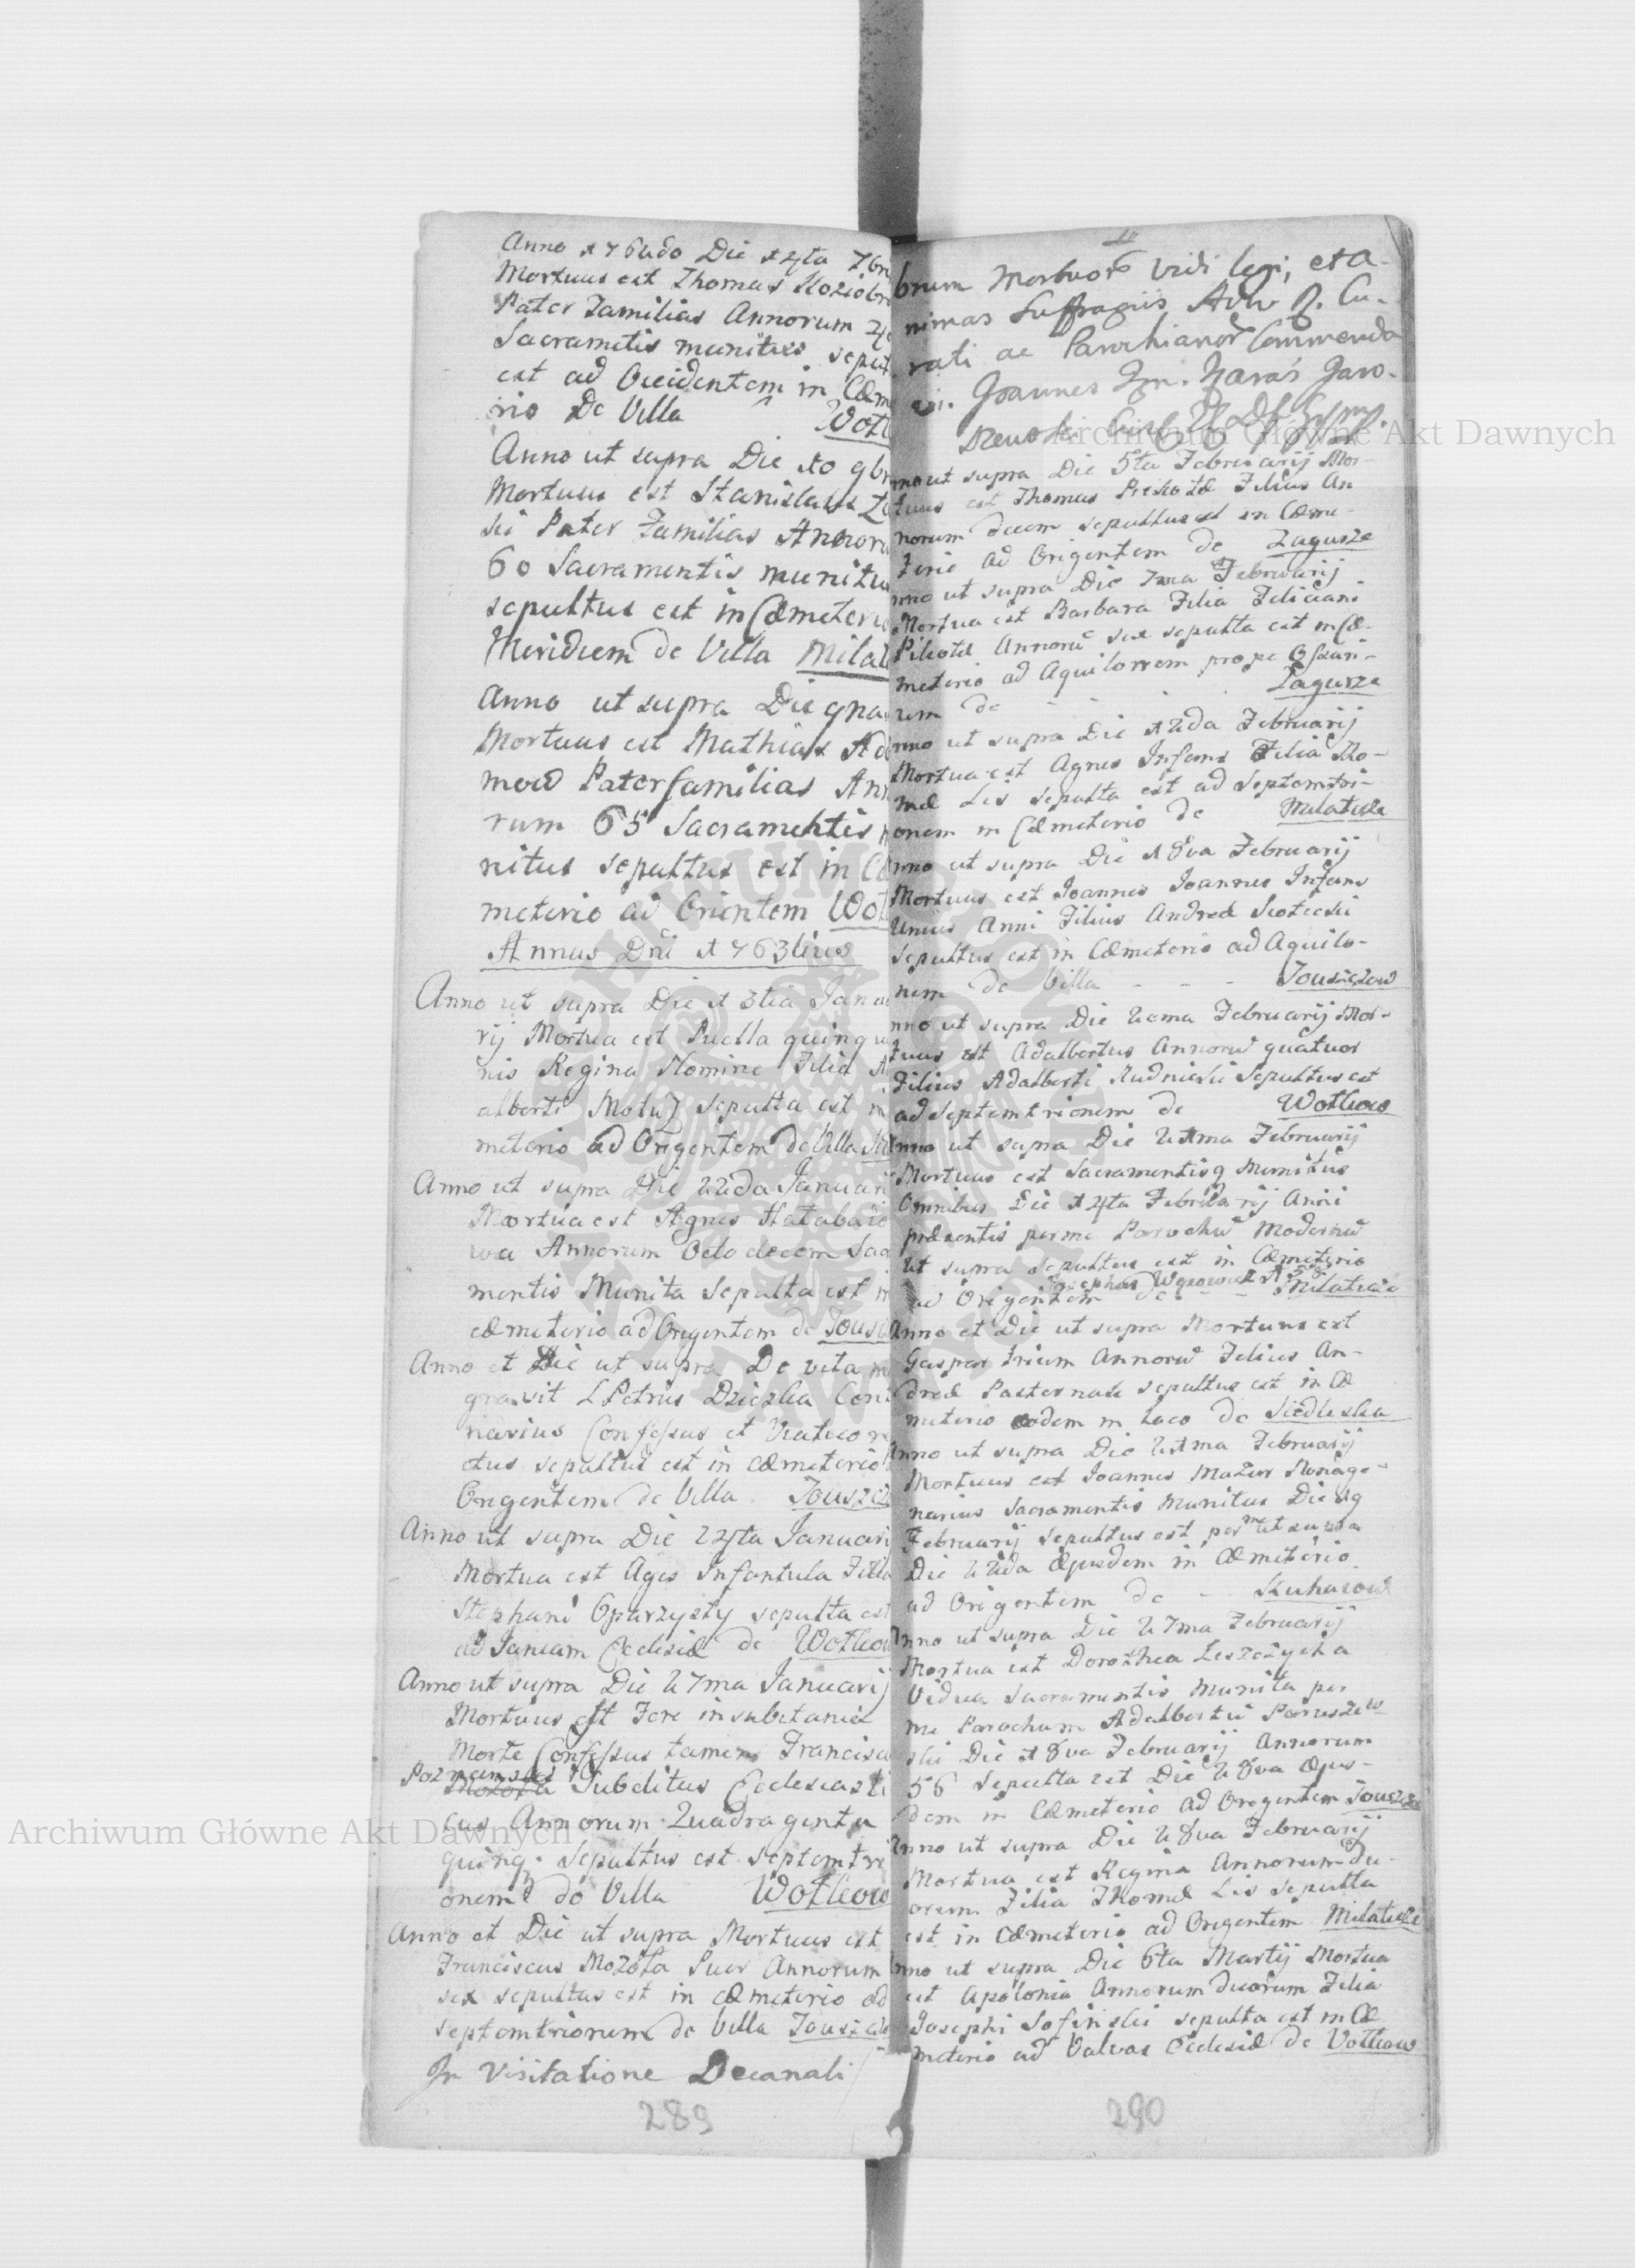 Anno 1762do Die 14ta 7br
Mortuus est Thomas Koziobr
Pater Familias Annorum
Sacrametis munitus sepult
est ad Occidentem in Cæme
rio De Villa Wotk
Anno ut supra Die 10 9br
Mortuus est Stanislaus
ski Pater Familias Annoru
60 Sacramentis munitu
sepultus est in Cæmeterio
Meridiem de Villa Milat
Anno ut supra Die 9na
Mortuus est Mathias Ad
mow Paterfamilias Ann
rum 65 Sacramentis
nitus sepultus est in Cæ
meterio ad Orientem Wot
Annus Dni 1763tius
Anno ut supra Die 13tia Janua
rij Mortua est Puella quinqu
nis Regina Nomine Filia A
alberti Motuz sepulta est in
meterio ad Origentem de Villa
Anno ut supra Die 22da Januari
Mortua est Agnes Hatabaio
wa Annorum Octodecem Sac
mentis Munita Sepulta est i
cæmeterio ad Origentem de Jousz
Anno et Die ut supra De vita mi
gravit Petrus Dziczka
narius Confessus et Viatico re
ctus sepultus est in cæmeterio
Origentem de Villa Jouszcz
Anno ut supra Die 24ta Januari
Mortua est Ages Infantula Filia
Stephani Oparzysty sepulta est
ad Januam Ecclesiæ de Wotkow
Anno ut supra Die 27ma Januarij
Mortuus est Fere insubitanea
Morte Confessus tamen Francisc
Poznanski Subditus Ecclesiasti
cus Annorum Quadraginta
quinq. Sepultus est septemtri
onem de Villa Wotkow
Anno et Die ut supra Mortuus est
Franciscus Mozoła Puer Annorum
sex sepultus est in cæmeterio ad
septemtrionem de Villa Jouszcz
In Visitatione Decanali
289
brum Mortuorũ Vidi legi, et a-
nimas Suffragiis Cu-
rati ac Parochianorũ Commenda
vi. Joannes Garo-
nno ut supra Die 5ta Februarij Mor-
tuus est Thomas Filius An
norum decem sepultus est in Cæme-
terio ad Origentem de Zagurze
nno ut supra Die 7ma Februarij
Mortua est Barbara Filia Feliciani
Pikota Annorũ sex sepulta est in Cæ-
meterio ad Aquilonem prope Ossari-
um de Zagurze
nno ut supra Die 12da Februarij
Mortua est Agnes Infans Filia Tho-
mæ Lis sepulta est ad Septemtri-
onem in Cæmeterio de Milatycze
nno ut supra Die 18va Februarij
Mortuus est Joannes Joannes Infans
Unius Anni Filius Andreæ
Sepultus est in Cæmeterio ad Aquilo-
nem de Villa - - - Jouszczow
nno ut supra Die 20ma Februarij Mor-
tuus est Adalbertus Annorũ quatuor
Filius Adalberti Rudnicki Sepultus est
ad Septemtrionem de Wotkow
nno ut supra Die 21ma Februarij
Mortuus est Sacramentisq Munitus
Omnibus Die 14ta Februarij Anni
præsentis per me Parochũ Modernũ
ut supra Sepultus est in Cæmeterio
Josephus
ad Origentem de - - Milaticze
Anno et Die ut supra Mortuus est
Gaspar Trium Annorũ Filius An-
dreæ Pasternak sepultus est in Cæ
meterio eodem in Loco de Siedliska
nno ut supra Die 21ma Februarij
Mortuus est Joannes Mazur Nonage-
narius Sacramentis Munitus Die 19
Februarij Sepultus est per me ut supra
Die 22da Ejusdem in Cæmeterio
ad Origentem de - Kuhaiow
Anno ut supra Die 27ma Februarij
Mortua est Dorothea Leszczycka
Vidua Sacramentis Munita per
me Parochum Adalbertũ Paruszew
ski Die 18va Februarij Annorum
56 Sepulta est Die 28va Ejus-
dem in Cæmeterio ad Origentem Jouszcz
Anno ut supra Die 28va Februarij
Mortua est Regina Annorum Du-
orum Filia Thomæ Lis sepulta
est in Cæmeterio ad Origentem Milatycze
nno ut supra Die 6ta Martij Mortua
est Apolonia Annorum duorum Filia
Josephi Sofinski sepulta est in Cæ
meterio ad Valvas Ecclesiæ de Votkow
290
Archiwum Główne Akt Dawnych
Archiwum Główne Akt Dawnych